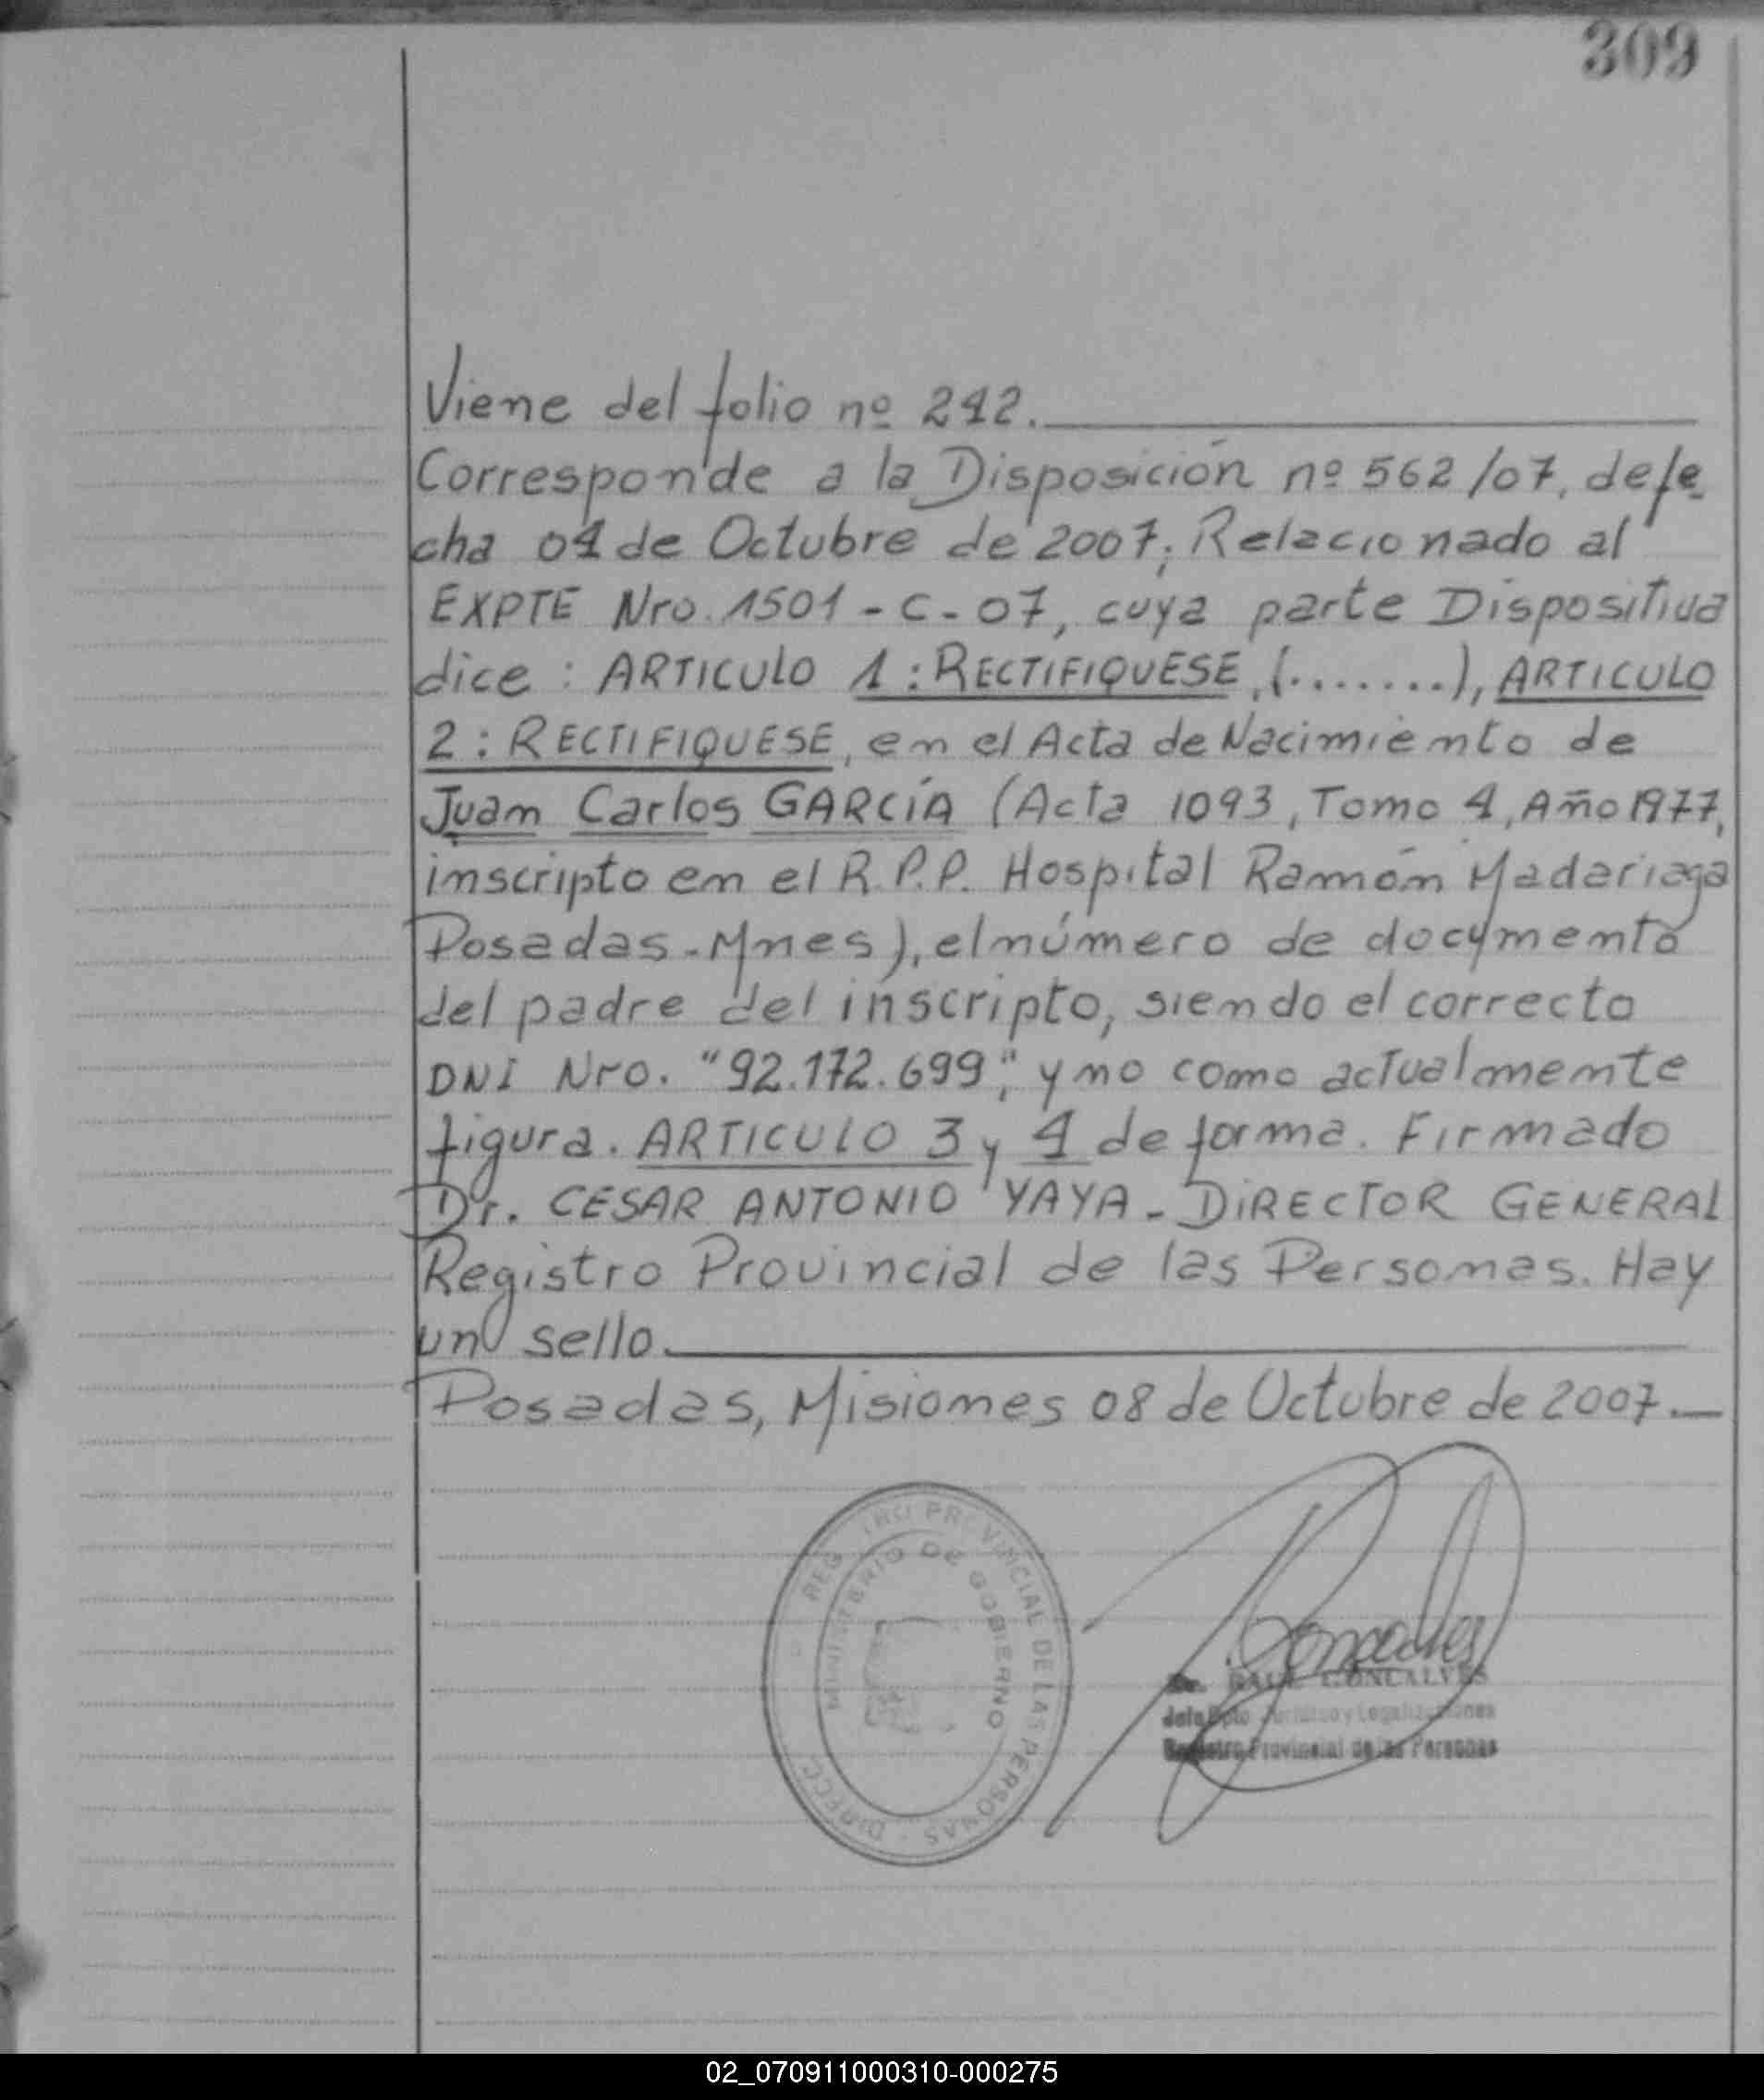 309
Viene del folio nº 242.
Corresponde a la Disposición nº 562/07, de fe
cha 04 de Octubre de 2007, Relacionado al
EXPTE Nro. 1501-C-07, cuya parte Dispositiva
dice: ARTICULO 1: RECTIFIQUESE, (.......), ARTICULO
2: RECTIFIQUESE, en el Acta de Nacimiento de
Juan Carlos GARCÍA (Acta 1093, Tomo 4, Año 1977,
inscripto en el R.P.P. Hospital Ramón Madariaga
Posadas-Mnes), el número de documento
del padre del inscripto, siendo el correcto
DNI Nro. "92.172.699", y no como actualmente
figura. ARTICULO 3 y 4 de forma. Firmado
Dr. CESAR ANTONIO YAYA - DIRECTOR GENERAL
Registro Provincial de las Personas. Hay
un sello.
Posadas, Misiones 08 de Octubre de 2007.
REG TRO PROVINCIAL DE LAS PERSONAS - DIRECC
MINISTERIO DE GOBIERNO
Dr. RAUL GONCALVES
Jefe Dpto y Legalizaciones
Registro Provincial de las Personas
02_070911000310-000275